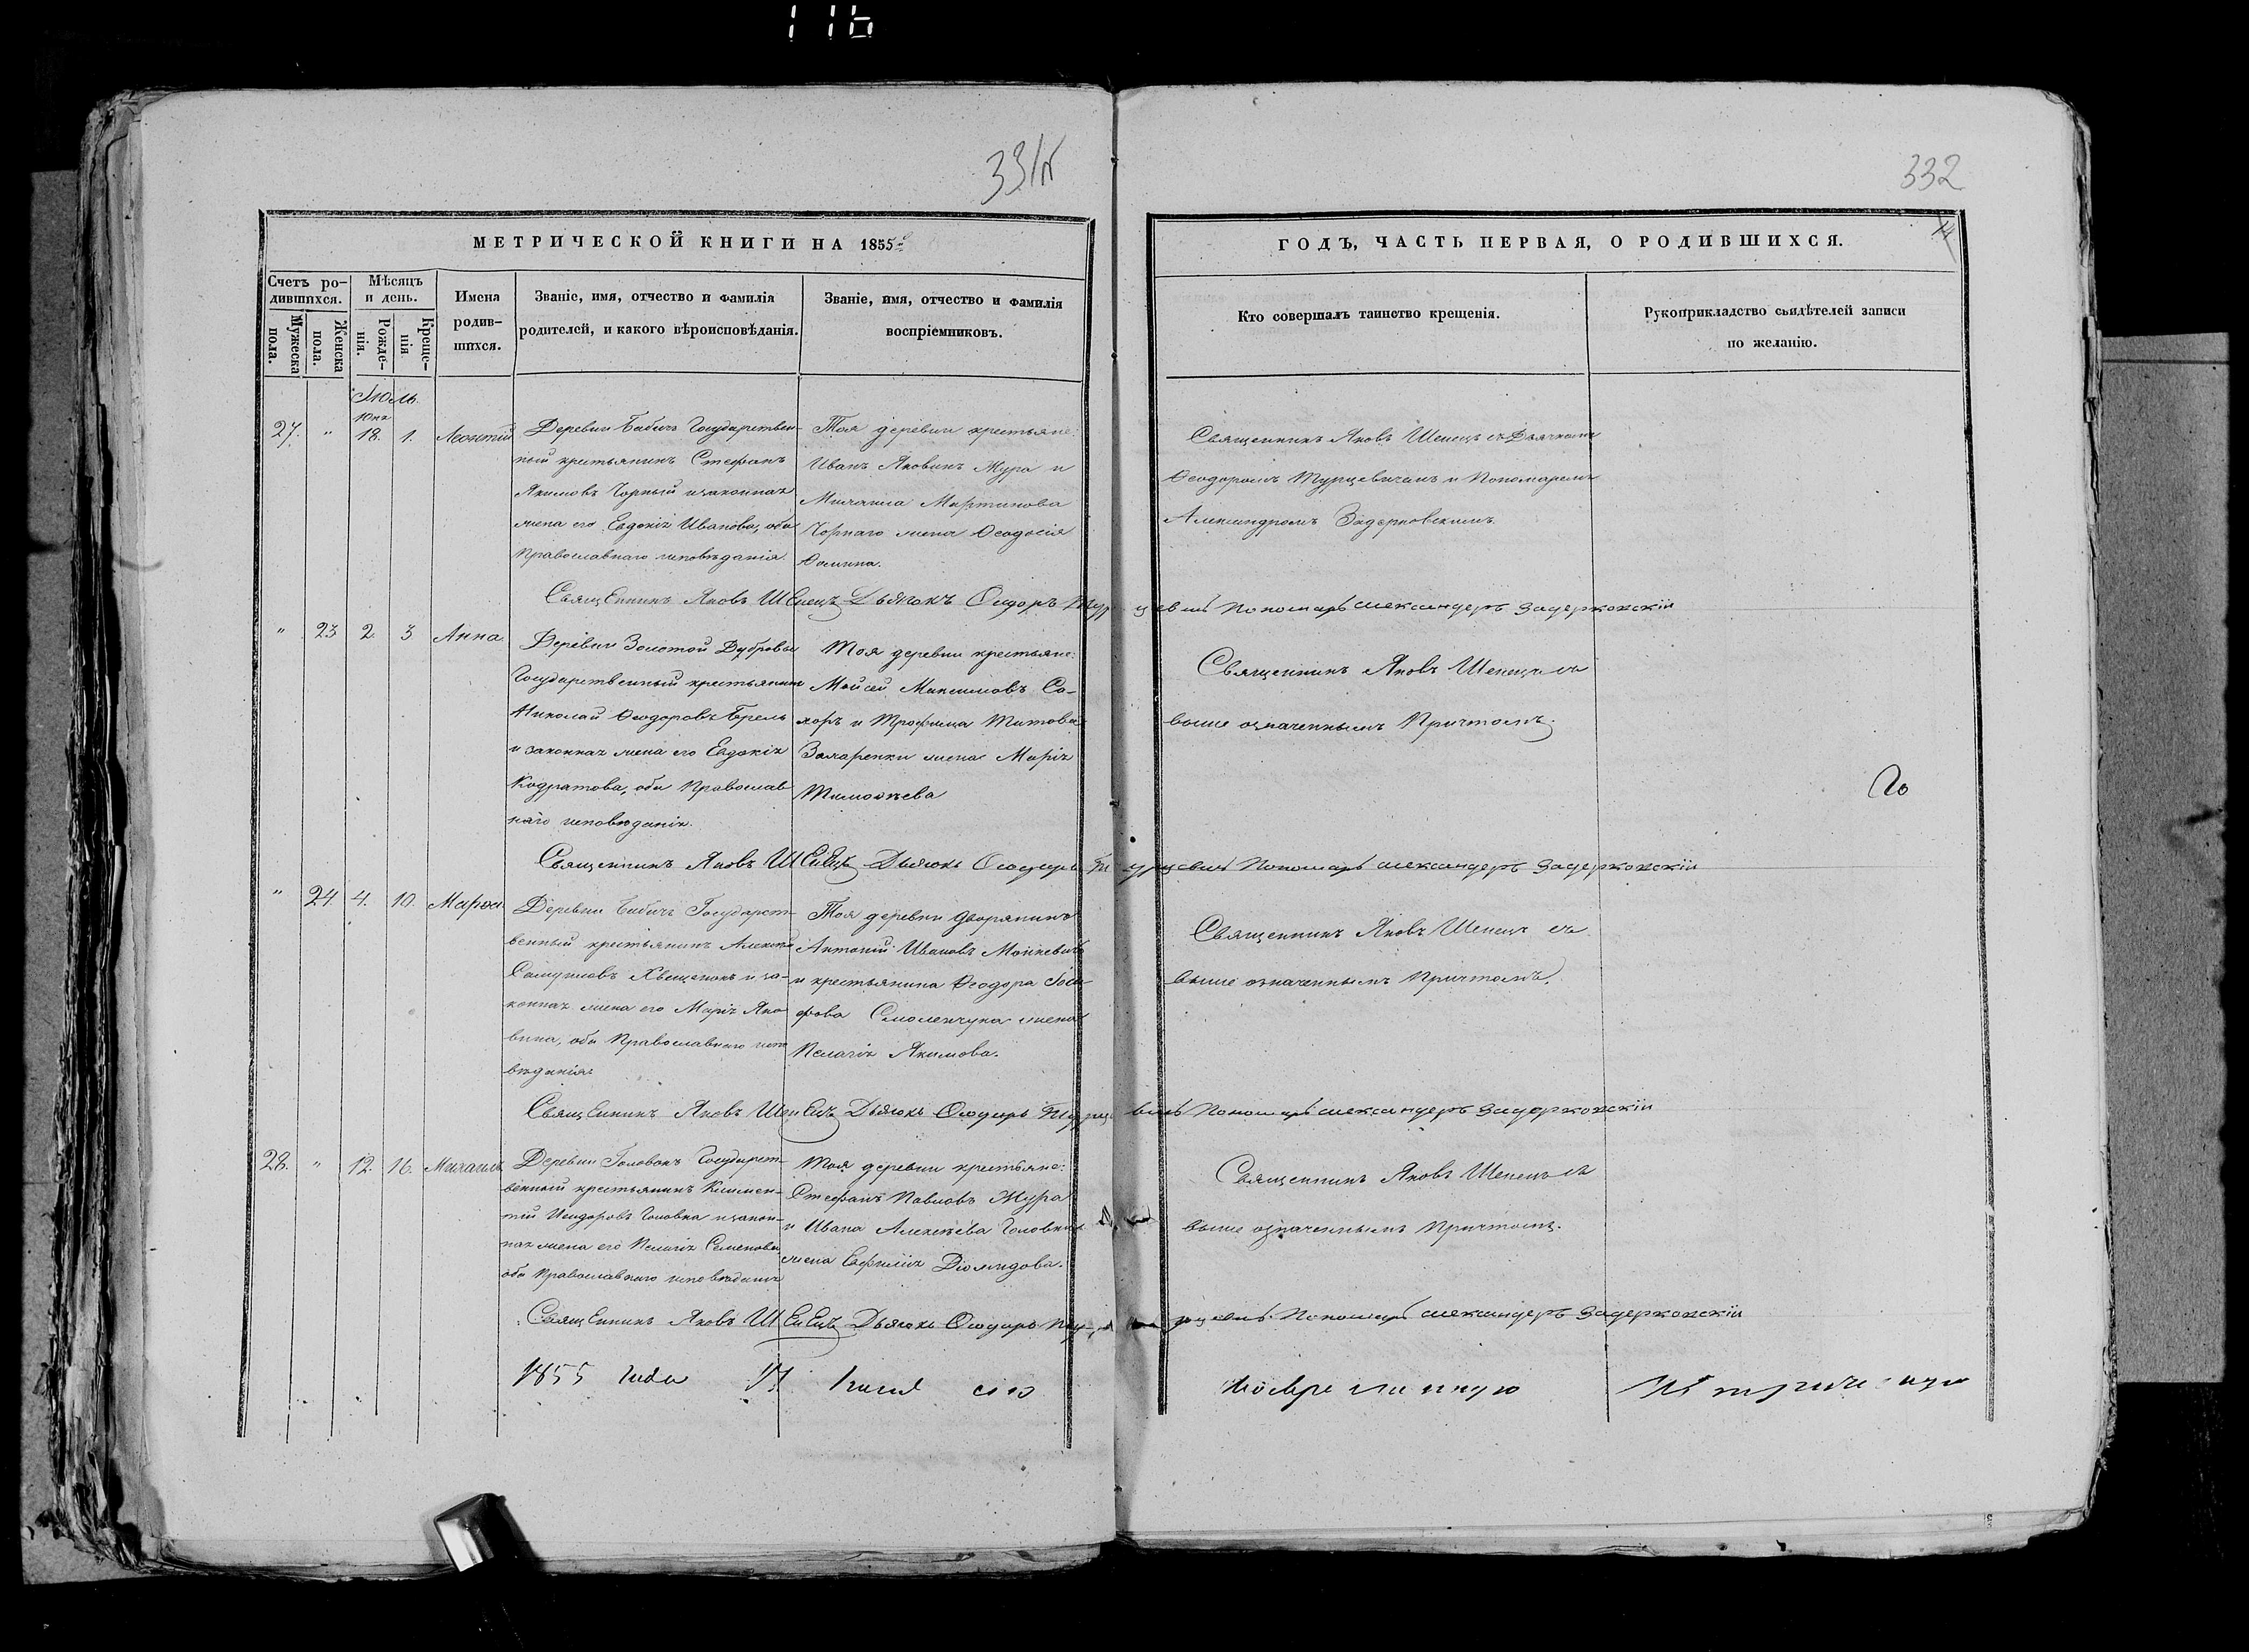 116
331п
332
МЕТРИЧЕСКОЙ КНИГИ НА 1855й
ГОДЪ, ЧАСТЬ ПЕРВАЯ, О РОДИВШИХСЯ.
Счетъ ро-
дившихся.
Мужеска
пола.
Женска
пола.
Мѣсяцъ
и день.
Рожде-
нія.
Креще-
нія
Имена
родив-
шихся.
Званіе, имя, отчество и фамилія
родителей, и какого вѣроисповѣданія.
Званіе, имя, отчество и фамилія
воспріемниковъ.
Кто совершалъ таинство крещенія.
Рукоприкладство свидѣтелей записи
по желанію.
Іюль.
Юня
27. " 18. 1. Леонтій
Деревни Бабичъ Государствен-
ный крестьянинъ Стефанъ
Якимовъ Чорный и законная
жена его Евдокія Иванова, оба
Православнаго исповѣданія.
Тоя деревни крестьяне:
Иванъ Яковинъ Жура и
Михаила Мартинова
Чорнаго жена Ѳеодосія
Ѳомина.
Священникъ Яковъ Шепецъ съ Дьячкомъ
Ѳеодоромъ Турцевичемъ и Пономаремъ
Александромъ Задерковскимъ.
Священникъ Яковъ Шепецъ Дьячокъ Ѳеодоръ Турцевичъ Пономарь Александеръ Задерковскій
" 23 2. 3 Анна.
Деревни Золотой Дубровы
Государственный крестьянинъ
Николай Ѳеодоровъ Брель
и законная жена его Евдокія
Кодратова, оба Православ
наго исповѣданія.
Тоя деревни крестьяне:
Мойсей Максимовъ Со-
хоръ и Трофима Титова
Захаренки жена Марія
Тимоѳѣева
Священникъ Яковъ Шепецъ съ
выше означеннымъ Причтомъ.
По
Священникъ Яковъ Шепецъ Дьячокъ Ѳеодоръ Турцевичъ Пономарь Александеръ Задерковскій
" 24 4. 10. Марѳа.
Деревни Бабичъ Государст-
венный крестьянинъ Алексѣй
Самуиловъ Хвещенокъ и за-
конная жена его Марія Яко
вина, оба Православнаго испо
вѣданія.
Тоя деревни дворянинъ
Антоній Ивановъ Моткевичъ
и крестьянина Ѳеодора Іоси
фова Смоленчука жена
Пелагія Якимова.
Священникъ Яковъ Шепецъ съ
выше означеннымъ Причтомъ.
Священникъ Яковъ Шепецъ Дьячокъ Ѳеодоръ Турцевичъ Пономарь Александеръ Задерковскій
28. " 12. 16. Михаилъ
Деревни Головокъ Государст-
венный крестьянинъ Климен-
тій Исидоровъ Головка и закон-
ная жена его Пелагія Семенова,
оба Православнаго исповѣданія
Тоя деревни крестьяне:
Стефанъ Павловъ Жура
и Ивана Алексѣева Головки
жена Евфимія Діомидова.
Священникъ Яковъ Шепецъ съ
выше означеннымъ Причтомъ.
Священникъ Яковъ Шепецъ Дьячокъ Ѳеодоръ Турцевичъ Пономарь Александеръ Задерковскій
1855 года сію